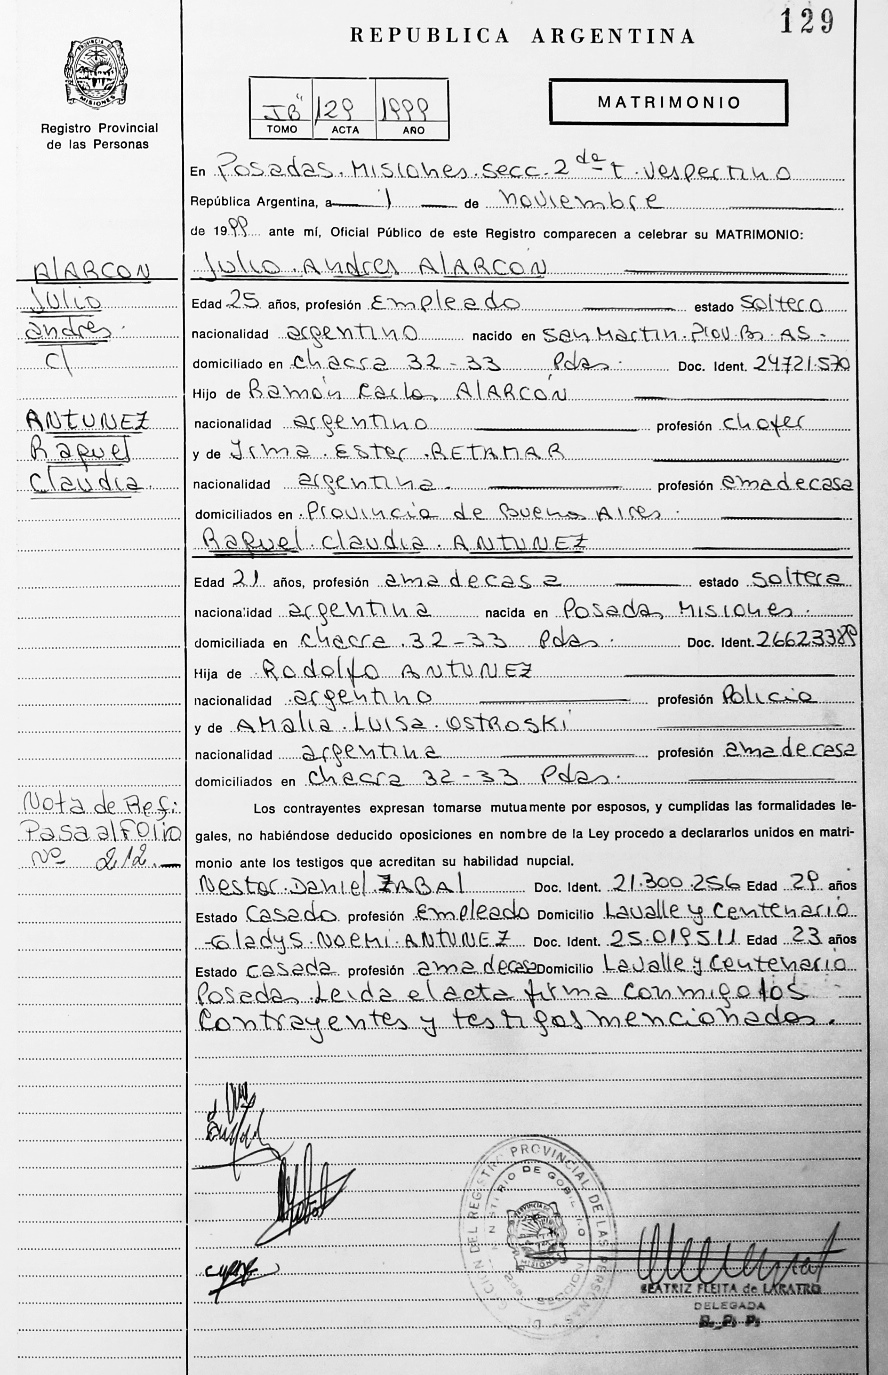 129
REPUBLICA ARGENTINA
PROVINCIA DE
MISIONES
Registro Provincial
de las Personas
IB" 129 1999
TOMO ACTA AÑO
MATRIMONIO
En Posadas. Misiones. secc. 2da t. vespertino
República Argentina, a 1 de noviembre
de 1999 ante mí, Oficial Público de este Registro comparecen a celebrar su MATRIMONIO:
ALARCON
Julio
andres
c/
ANTUNEZ
Raquel
Claudia
Julio Andres ALARCON
Edad 25 años, profesión Empleado estado soltero
nacionalidad argentino nacido en San Martin. Prov. Bs. AS.
domiciliado en chacra 32-33 Pdas. Doc. Ident. 24721.570
Hijo de Ramón Carlos ALARCÓN
nacionalidad argentino profesión chofer
y de Irma. Ester. RETAMAR
nacionalidad argentina. profesión ama de casa
domiciliados en Provincia de Buenos Aires.
Raquel. Claudia. ANTUNEZ
Edad 21 años, profesión ama de casa estado soltera
nacionalidad argentina nacida en Posadas Misiones.
domiciliada en chacra. 32-33 Pdas. Doc. Ident. 26623389
Hija de Rodolfo ANTUNEZ
nacionalidad argentino profesión Policia
y de AMALIA. LUISA. OSTROSKI
nacionalidad argentina profesión ama de casa
domiciliados en chacra 32-33 Pdas.
Nota de Ref:
Pasa al Folio
Nº 212.
Los contrayentes expresan tomarse mutuamente por esposos, y cumplidas las formalidades le-
gales, no habiéndose deducido oposiciones en nombre de la Ley procedo a declararlos unidos en matri-
monio ante los testigos que acreditan su habilidad nupcial.
Nestor. Daniel. ZABAL Doc. Ident. 21.300.256 Edad 29 años
Estado Casado profesión empleado Domicilio Lavalle y Centenario
Gladys. NOEMI. ANTUNEZ Doc. Ident. 25.019511 Edad 23 años
Estado casada profesión ama de casa Domicilio Lavalle y Centenario
Posadas. Leida el acta firma conmigo los
Contrayentes y testigos mencionados.
REGISTRO PROVINCIAL DE LAS PERSONAS
MINISTERIO DE GOBIERNO
BEATRIZ FLEITA de LARATRO
DELEGADA
R. P. P.